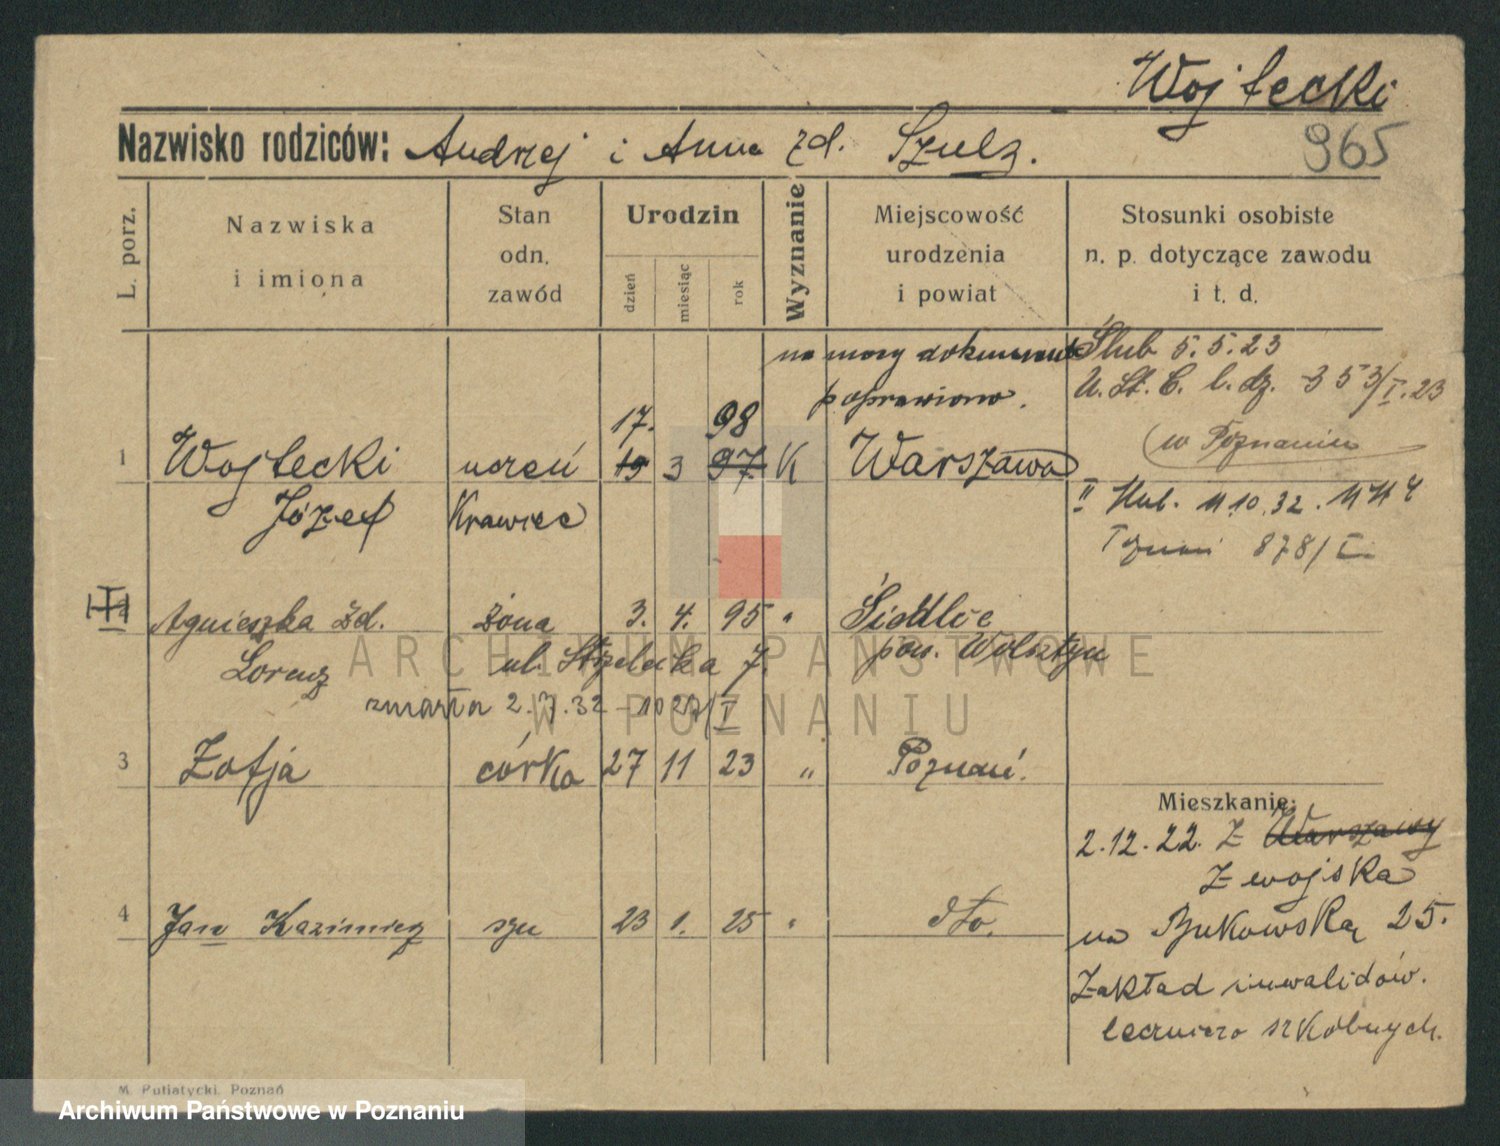 Wojtecki
965
Nazwisko rodziców: Andrzej i Anna zd. Szulz.
L. porz.
Nazwiska i imiona
Stan odn. zawód
Urodzin
dzień
miesiąc
rok
Wyznanie
Miejscowość urodzenia i powiat
Stosunki osobiste n. p. dotyczące zawodu i t. d.
na mocy dokumentu
poprawiono.
Ślub 5.5.23
U. St. C. l. dz. 353/I.23
(w Poznaniu
17. 98
1 Wojtecki uczeń 19 3 97. K Warszawa
Józef Krawiec
II ślub. 11.10.32.
878/
2 Agnieszka zd. żona 3. 4. 95 " Siedlic
Lorenz ul. Strzelecka 7. pow. Wolsztyn
zmarła 2.7.32
3 Zofja córka 27 11 23 " Poznań.
Mieszkanie:
2.12.22. Z Warszawy
Z wojska
na Bukowską 25.
4 Jan Kazimierz syn 23 1. 25 " dto.
Zakład inwalidów.
leczniczo szkolnych.
M. Putiatycki, Poznań
ARCHIWUM PAŃSTWOWE
W POZNANIU
Archiwum Państwowe w Poznaniu